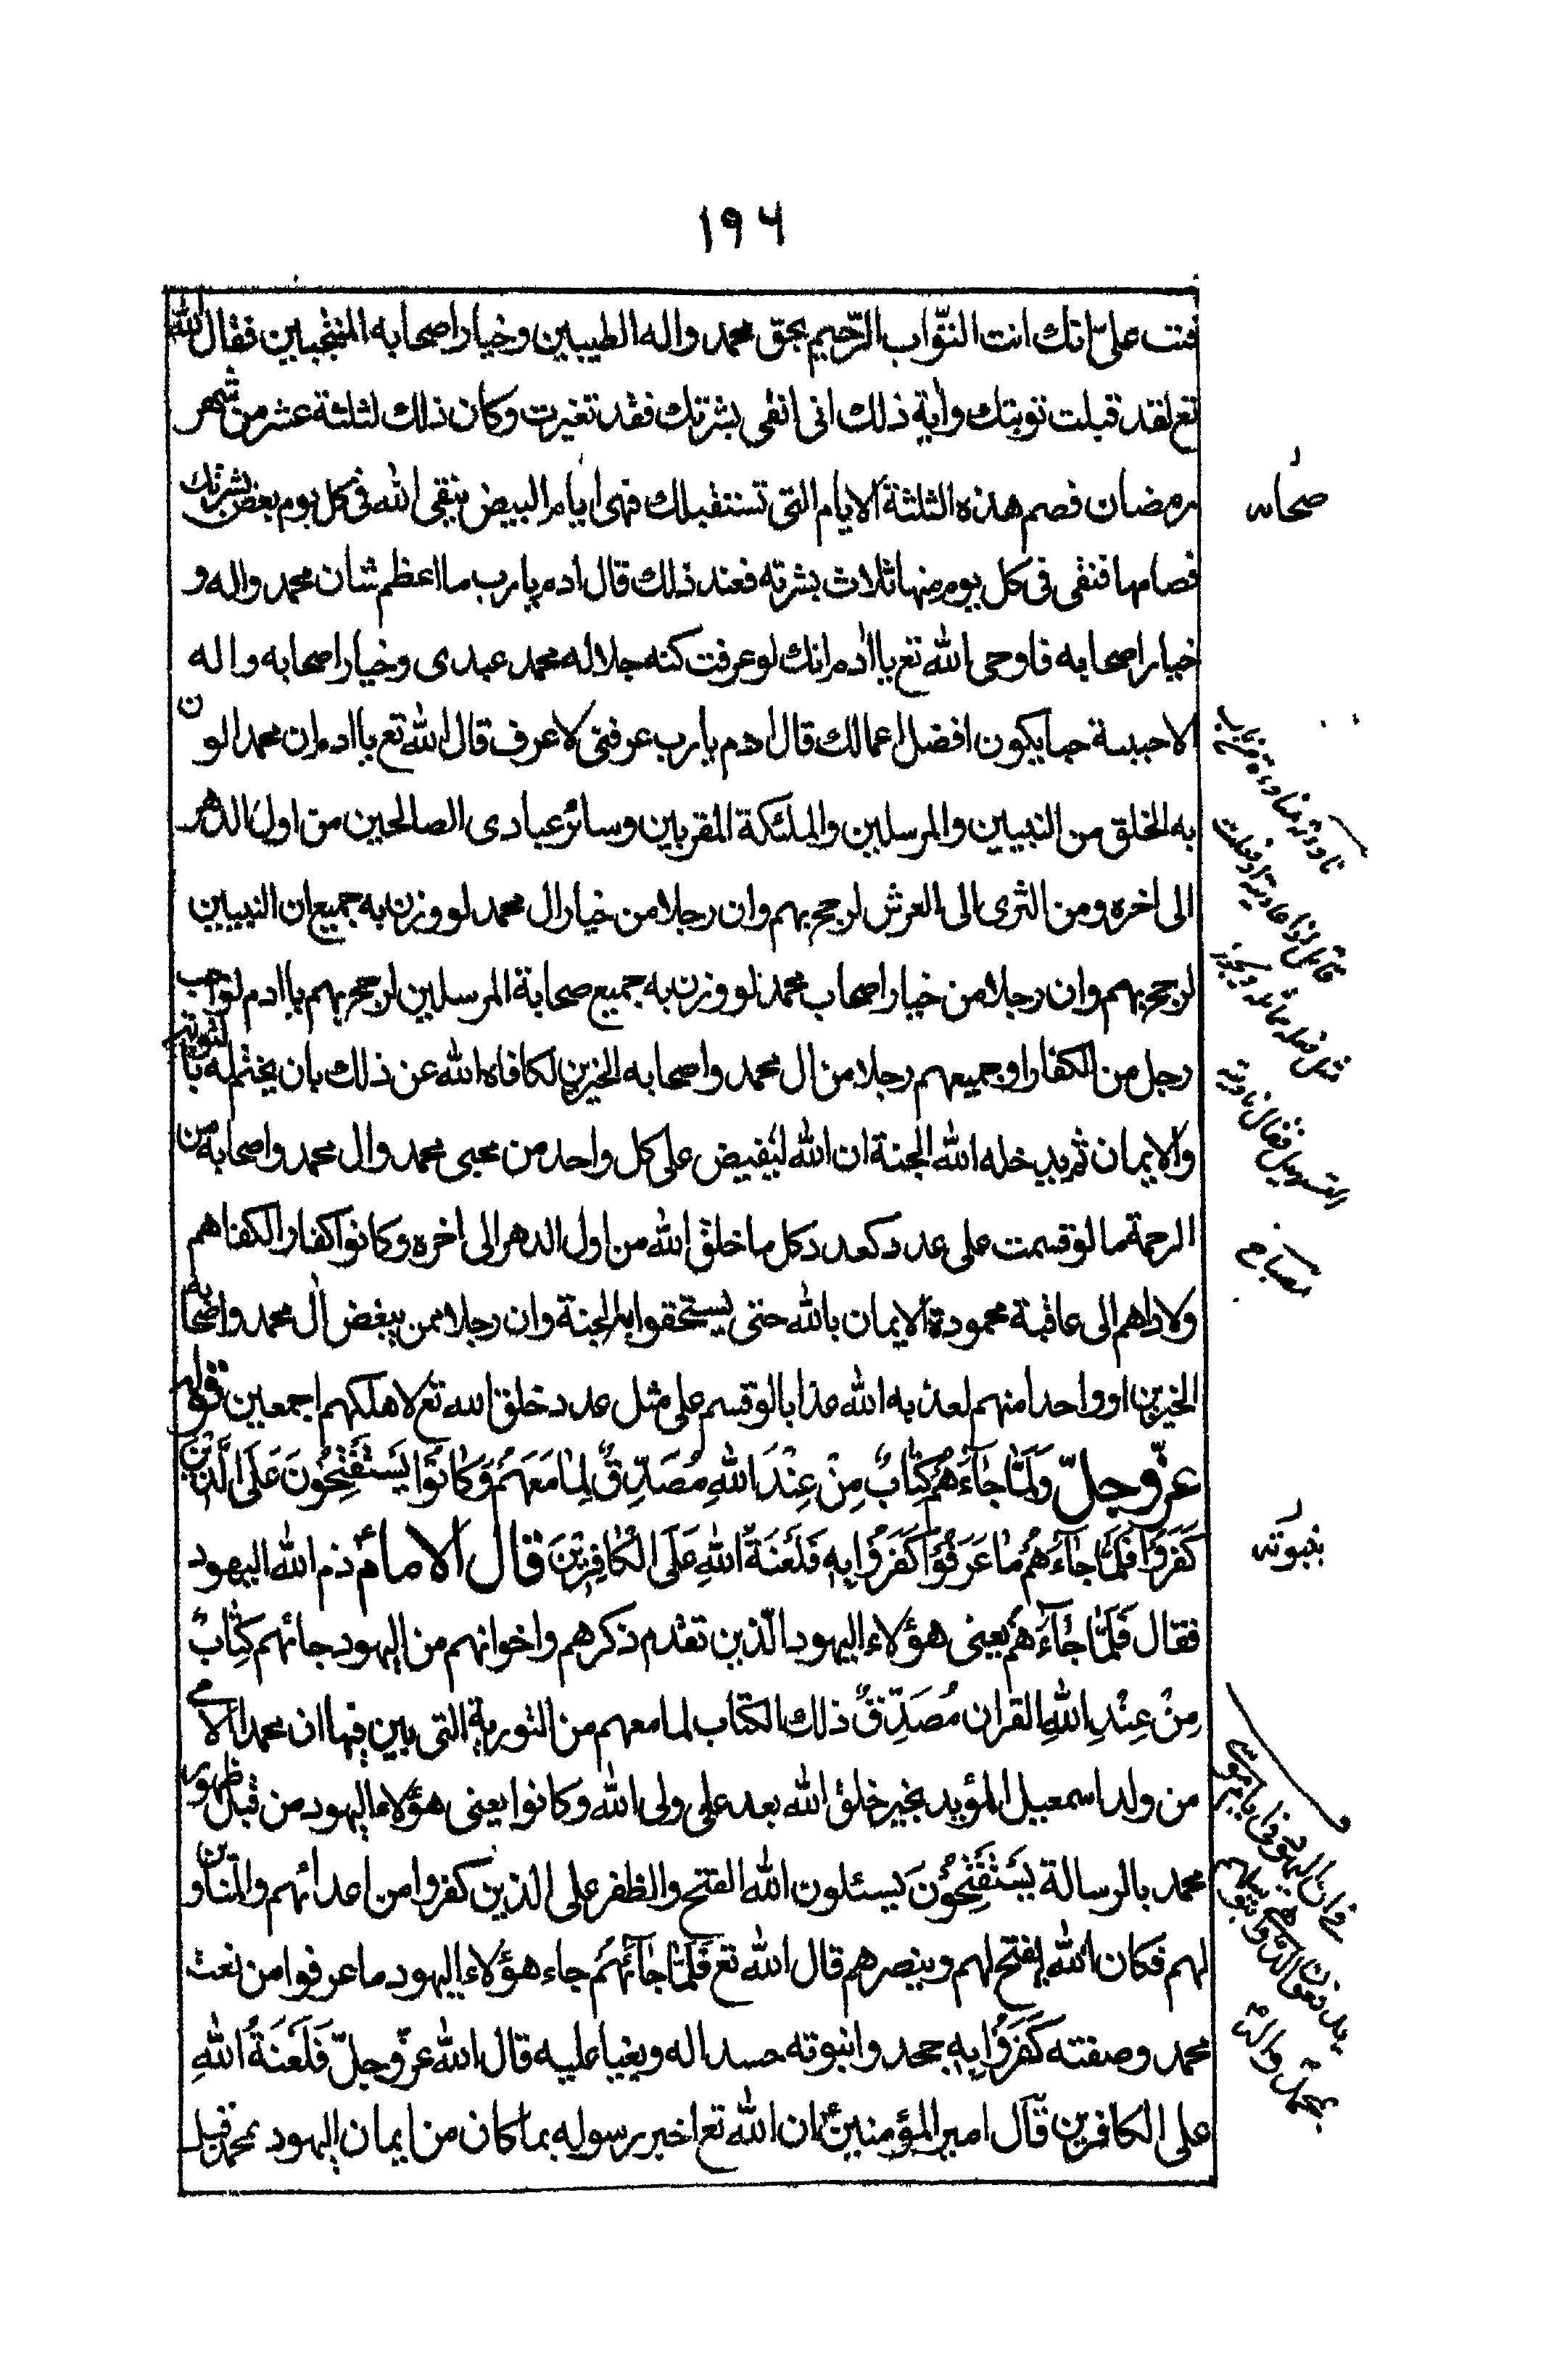 ١٩٦
فتب علىّ انك انت التوّاب الرّحيم بحقّ محمد واله الطيبين وخيار اصحابه المنتجبين فقال الله
تع لقد قبلت توبتك واية ذلك انى انقى بشرتك فقد تغيرت وكان ذلك لثلثة عشر من شهر
رمضان فصم هذه الثلثة الايام التى تستقبلك فهى ايام البيض ينقى الله فى كل يوم بعض بشرتك
فصامها فنقى فى كل يوم منها ثلاث بشرته فعند ذلك قال ادم يا رب ما اعظم شان محمد واله و
خيار اصحابه فاوحى الله تع يا ادم انك لو عرفت كنه جلاله محمد عبدى وخيار اصحابه واله
لاحببته حبا يكون افضل اعمالك قال ادم يا رب عرفنى لاعرف قال الله تع يا ادم ان محمدا لو وزن
به الخلق من النبيين والمرسلين والملئكة المقربين وسائر عبادى الصالحين من اول الدهر
الى اخره ومن الثرى الى العرش لرجح بهم وان رجلا من خيار ال محمد لو وزن به جميع ال النبيين
لرجح بهم وان رجلا من خيار اصحاب محمد لو وزن به جميع صحابة المرسلين لرجح بهم يا ادم لو احب
رجل من الكفار او جميعهم رجلا من ال محمد واصحابه الخيرين لكافاه الله عن ذلك بان يختم له بالتوبة
والايمان ثم يدخله الله الجنة ان الله ليفيض على كل واحد من محبى محمد وال محمد واصحابه من
الرحمة ما لو قسمت على عدد كعدد كل ما خلق الله من اول الدهر الى اخره وكانوا كفارا لكفاهم
ولاداهم الى عاقبة محمودة الايمان بالله حتى يستحقوا به الجنة وان رجلا ممن يبغض ال محمد واصحابه
الخيرين او واحدا منهم لعذبه الله عذابا لو قسم على مثل عدد خلق الله تع لاهلكهم اجمعين قوله
عزّ وجلّ وَلَمَّا جَآءَهُمْ كِتَابٌ مِنْ عِنْدِ اللهِ مُصَدِّقٌ لِمَا مَعَهُمْ وَكَانُوا يَسْتَفْتِحُونَ عَلَى الَّذِينَ
كَفَرُوا فَلَمَّا جَآءَهُمْ مَا عَرَفُوا كَفَرُوا بِهِ فَلَعْنَةُ اللهِ عَلَى الْكَافِرِينَ قال الامامؑ ذم الله اليهود
فقال فَلَمَّا جَآءَهُمْ يعنى هؤلاء اليهود الّذين تقدم ذكرهم واخوانهم من اليهود جائهم كِتَابٌ
مِنْ عِنْدِ اللهِ القران مُصَدِّقٌ ذلك الكتاب لما معهم من التورية التى بين فيها ان محمدا الامى
من ولد اسمعيل المؤيد بخير خلق الله بعد على ولى الله وكانوا يعنى هؤلاء اليهود من قبل ظهور
محمد بالرسالة يَسْتَفْتِحُونَ يسئلون الله الفتح والظفر على الذين كفروا من اعدائهم والمناوين
لهم فكان الله يفتح لهم وينصرهم قال الله تع فَلَمَّا جَآئَهُمْ جاء هؤلاء اليهود ما عرفوا من نعت
محمد وصفته كَفَرُوا بِهِ جحدوا نبوته حسدا له وبغيا عليه قال الله عزّ وجلّ فَلَعْنَةُ اللهِ
على الكافرين قال امير المؤمنينؑ ان الله تع اخبر رسوله بما كان من ايمان اليهود بمحمد قبل
صحابه
مصباح
بنبوته